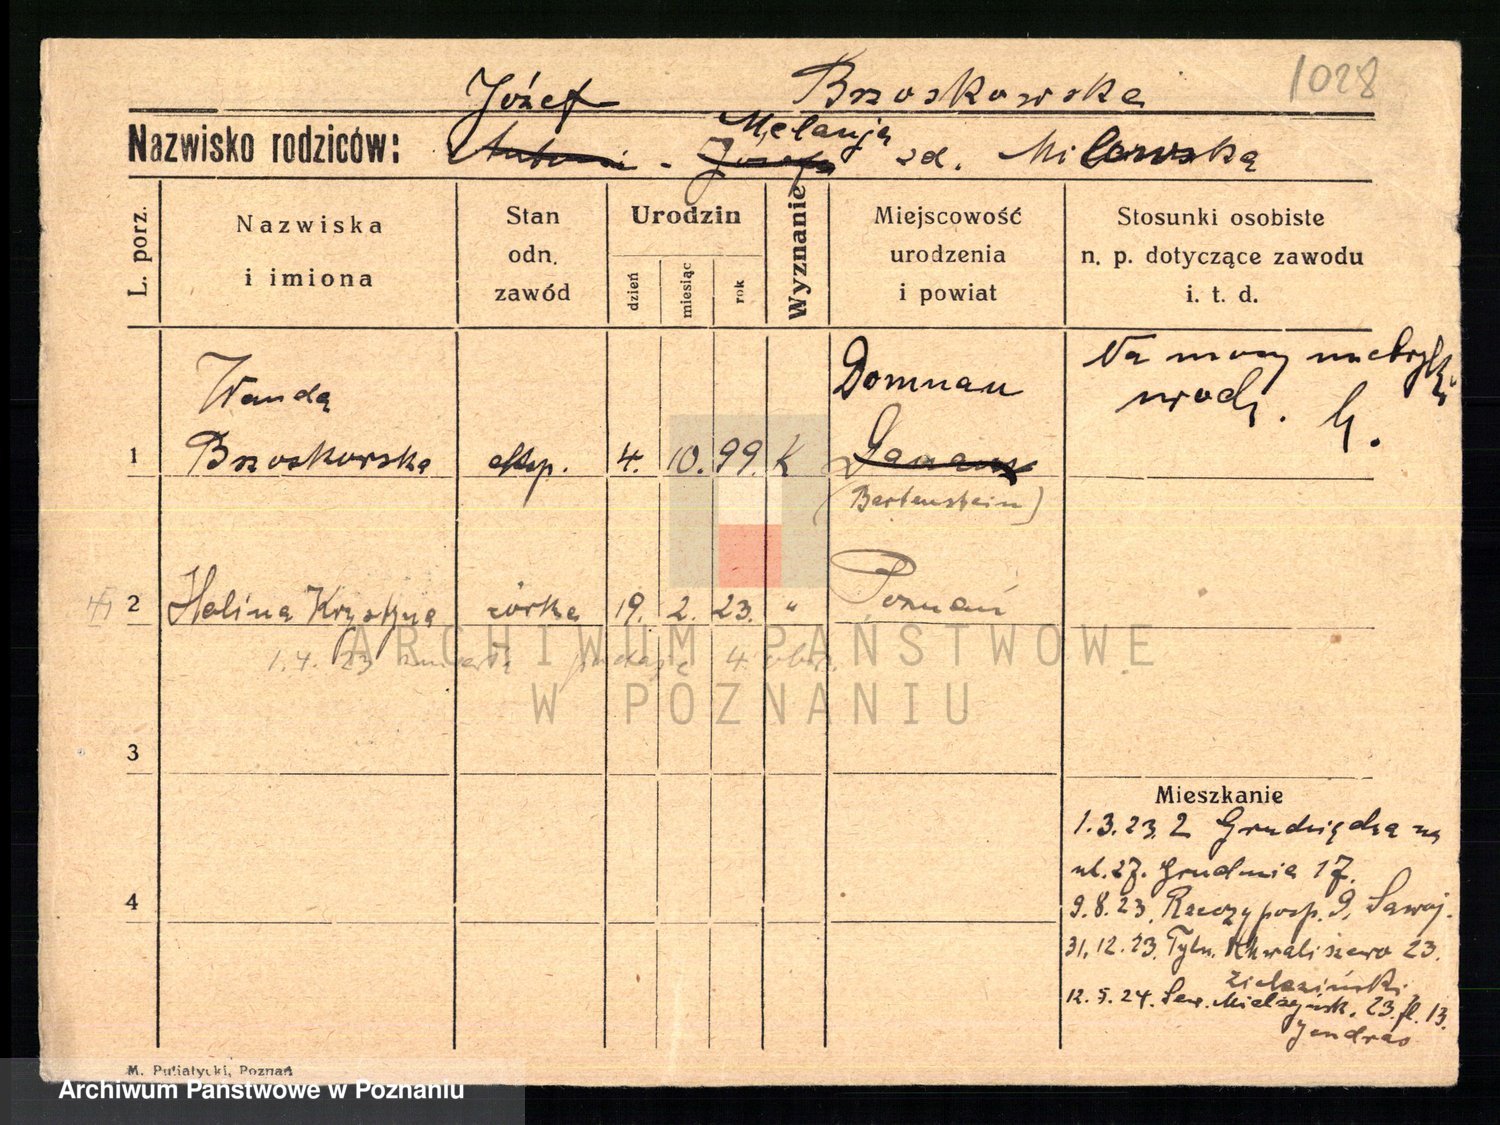 1028
Józef Brzoskowska
Melanja
Nazwisko rodziców: Antoni - Józefa zd. Milewską
L. porz.
Nazwiska i imiona
Stan odn. zawód
Urodzin
dzień
miesiąc
rok
Wyznanie
Miejscowość urodzenia i powiat
Stosunki osobiste n. p. dotyczące zawodu i. t. d.
Wanda Domnau Na mocy
1 Brzoskowska eksp. 4. 10. 99. K
(Bartenstein)
2 Halina Krystyna córka 19. 2. 23. " Poznań
1.4. 23 zmarła podaje 4
ARCHIWUM PAŃSTWOWE
W POZNANIU
3
Mieszkanie
1.3.23. Z Grudziądza na
ul. 27. Grudnia 17.
4
9.8.23. Rzeczyposp. 9, Sawoj.
31.12.23. Tym. Chwaliszewo 23.
Zieleziński
12.5.24. Sew. Mielżyńsk. 23. 13.
Jendras
M. Putiatycki, Poznań
Archiwum Państwowe w Poznaniu